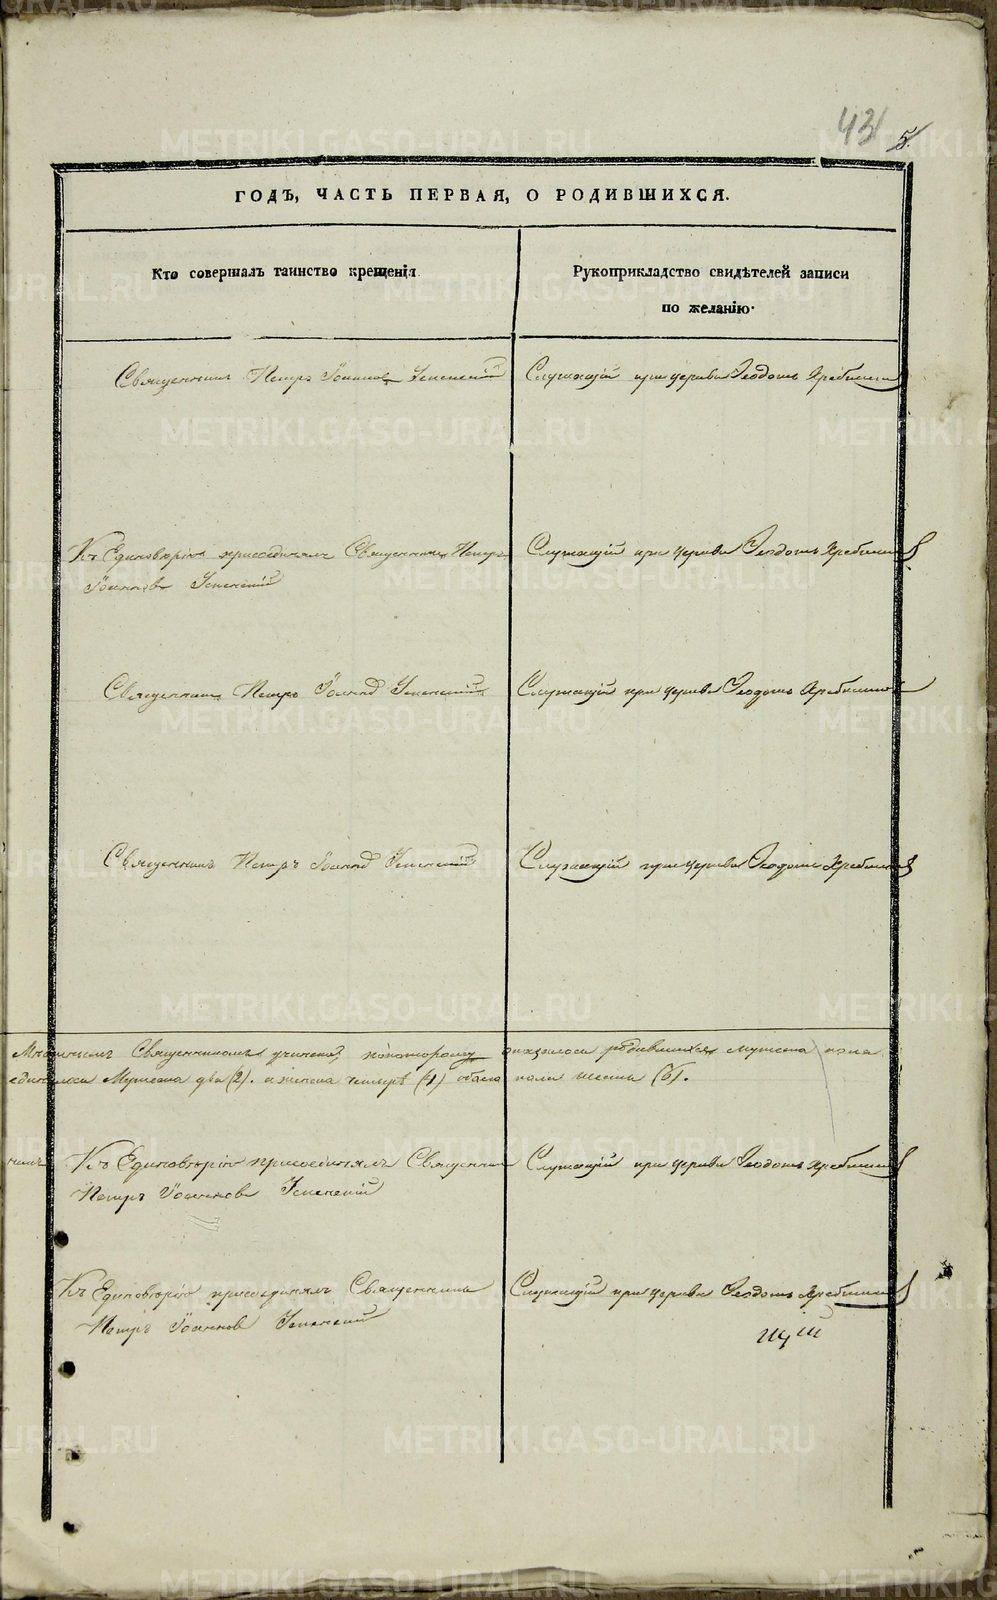 43 5.
ГОДЪ, ЧАСТЬ ПЕРВАЯ, О РОДИВШИХСЯ.
Кто совершалъ таинство крещенія
Рукоприкладство свидѣтелей записи
по желанію.
Священникъ Петръ Іоанновъ Успенскій
Служащій при церкви Ѳеодотъ
Къ Единовѣрію присоединялъ Священникъ Петръ
Іоанновъ Успенскій
Служащій при церкви Ѳеодотъ
Священникъ Петръ Іоаннов Успенскій
Служащій при церкви Ѳеодотъ
Священникъ Петръ Іоаннов Успенскій
Служащій при церкви Ѳеодотъ
Мѣстнымъ Священникомъ учинено, по которому оказалось родившихся мужеска пола
Мужеска два (2). а женска четыре (4) обоего пола шесть (6).
Къ Единовѣрію присоединялъ Священникъ
Петръ Іоанновъ Успенскій
Служащій при церкви Ѳеодотъ
Къ Единовѣрію присоединялъ Священникъ
Петръ Іоанновъ Успенскій
Служащій при церкви Ѳеодотъ
METRIKI.GASO-URAL.RU